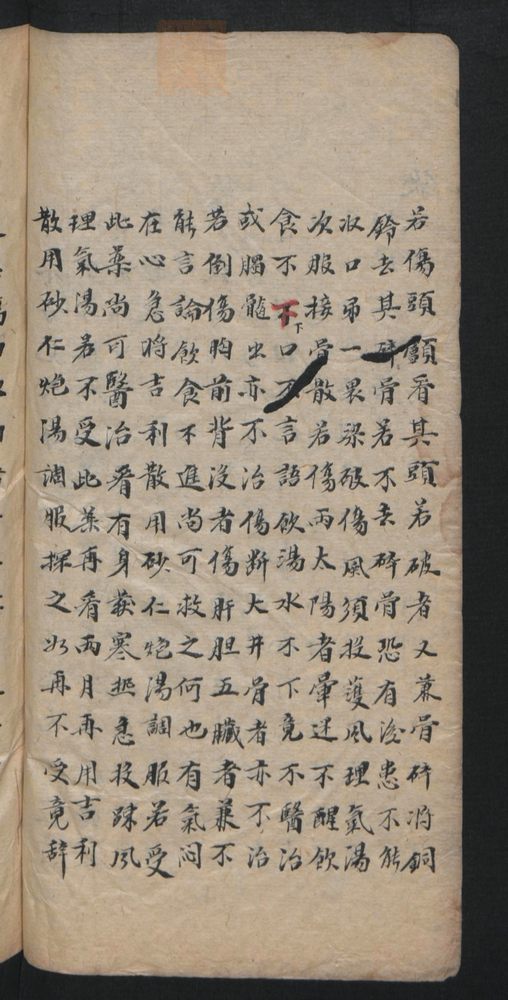 若傷頭顱看其頭若破者又兼骨碎將銅
鈴去其碎骨若不去碎骨恐有後患不能
収口弟一畏染破傷風須投護風理氣湯
次服接骨散若傷兩太陽者暈迷不醒飲
食不下口不言語飲湯水不下竟不醫治
或腦髓出亦不治傷斷大井骨者亦不治
若倒傷胸前背沒者傷肝胆五臟者兼不
能言論飲食不進尚可救之何也有氣悶
在心急將吉利散用砂仁炮湯調服若受
此藥尚可醫治看有身發寒熱急投疎風
理氣湯若不受此藥再看兩月再用吉利
散用砂仁炮湯調服探之如再不受竟辞